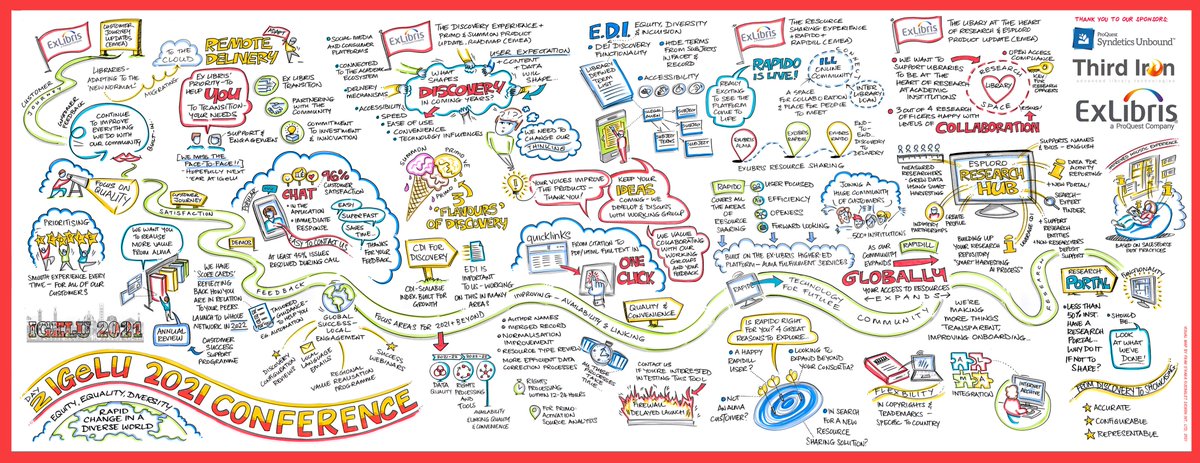 ExLibris
CUSTOMER
JOURNEY
UPDATES
(EMEA)
TO THE
CLOUD
MIGRATING
REMOTE
DELIVERY
ADAPT
LIBRARIES -
ADAPTING TO THE
'NEW NORMAL'
CUSTOMER
JOURNEY
CUSTOMER
FEEDBACK
CONTINUE
TO IMPROVE
EVERYTHING
WE DO WITH
OUR COMMUNITY
EX LIBRIS
PRIORITY - TO
HELP
YOU
TO TRANSITION -
YOUR NEEDS
EX LIBRIS
TRANSITION
PARTNERING
WITH THE
COMMUNITY
COMMITMENT
TO INVESTMENT
& INNOVATION
SUPPORT &
ENGAGEMENT
WE MISS THE
FACE-TO-FACE!!
HOPEFULLY NEXT
YEAR AT IGELU
FOCUS ON
QUALITY
CUSTOMER
JOURNEY
SATISFACTION
PRIORITISING
SMOOTH EXPERIENCE EVERY
TIME - FOR ALL OF OUR
CUSTOMERS
WE WANT
YOU TO
REALISE
MORE VALUE
FROM
ALMA
ANNUAL
REVIEW
CUSTOMER
SUCCESS
SUPPORT
PROGRAMME
WE HAVE
SCORE CARDS
REFLECTING
BACK HOW YOU
ARE IN RELATION
TO YOUR PEERS
LAUNCH TO WHOLE
NETWORK IN 2022
DEMOS
96%
CUSTOMER
SATISFACTION
CHAT
• IN THE
APPLICATION
• IMMEDIATE
RESPONSE
EASY
SUPERFAST
SAVES
TIME...
EASY TO CONTACT US
THANKS
FOR YOUR
FEEDBACK
AT LEAST 45% ISSUES
RESOLVED DURING CALL
FEEDBACK
GLOBAL
SUCCESS -
LOCAL
ENGAGEMENT
LOCAL
LANGUAGE
EMAILS
SUCCESS
WEBINARS
REGIONAL
VALUE REALISATION
PROGRAMME
IGELU 2021
DAY
2
IGeLU 2021
CONFERENCE
EQUITY, EQUALITY, DIVERSITY
RAPID
CHANGE IN A
DIVERSE WORLD
ExLibris
THE DISCOVERY EXPERIENCE +
PRIMO & SUMMON PRODUCT
UPDATE, ROADMAP (EMEA)
• SOCIAL MEDIA
AND CONSUMER
PLATFORMS
• CONNECTED TO
THE ACADEMIC
ECOSYSTEM
• DELIVERY
MECHANISMS
• ACCESSIBILITY
• SPEED
• EASE OF USE
CONVENIENCE
• TECHNOLOGY INFLUENCES
USER EXPECTATION
+ CONTENT
+ DATA
WILL
SHAPE...
WHAT
SHAPES
DISCOVERY
IN COMING YEARS?
WE NEED TO
CHANGE OUR
THINKING
SUMMON
PRIMO VE
PRIMO
3
'FLAVOURS'
OF DISCOVERY
CDI FOR
DISCOVERY
CDI - SCALABLE
INDEX BUILT FOR
GROWTH
EDI IS
IMPORTANT
TO US - WORKING
ON THIS IN MANY
AREAS
FOCUS AREAS FOR 2021 + BEYOND
IMPROVING - AVAILABILITY & LINKING
DATA
QUALITY
RIGHTS
PROCESSING
AND
TOOLS
AVAILABILITY
LINKING QUALITY
& CONVENIENCE
• AUTHOR NAMES
• MERGED RECORD
NORMALISATION
IMPROVEMENT
• RESOURCE TYPE REVIEW
• MORE EFFICIENT DATA
CORRECTION PROCESSES
RIGHTS
PROCESSING
WITHIN 12-28 HOURS
FOR PRIMO -
ACTIVATION
SOURCE ANALYTICS
E.D.I.
EQUITY, DIVERSITY
& INCLUSION
• DEI DISCOVERY
FUNCTIONALITY
• HIDE TERMS
FROM SUBJECTS
IN FACET &
RECORD
LIBRARY
DEFINED
TERM
LIST
• ACCESSIBILITY
SUBJECT
SUBJECT
TERMS
SUBJECT
YOUR VOICES IMPROVE
THE PRODUCTS -
THANK YOU!
KEEP YOUR
IDEAS
COMING - WE
DEVELOP & DISCUSS
WITH WORKING GROUP
quicklinks
FROM CITATION TO
PDF/HTML FULL TEXT IN
ONE
CLICK
WE VALUE
COLLABORATING
WITH OUR
WORKING
GROUPS
AND YOUR
FEEDBACK
QUALITY &
CONVENIENCE
CONTACT US
IF YOU'RE INTERESTED
IN TESTING THIS TOOL
FIREWALL
DELAYED LAUNCH
ExLibris
THE RESOURCE
SHARING EXPERIENCE
• RAPIDO +
RAPIDILL (EMEA)
RAPIDO
IS LIVE!
REALLY
EXCITING
TO SEE THE
PLATFORM
COME TO
LIFE
ILL
ONLINE
COMMUNITY
A SPACE
FOR COLLABORATION
& PLACE FOR PEOPLE
TO MEET
INTER
LIBRARY
LOAN
EXLIBRIS
ALMA
EXLIBRIS
RAPIDILL
EXLIBRIS
RAPIDO
END-TO-
END-DISCOVERY
TO
DELIVERY
EXLIBRIS RESOURCE SHARING
RAPIDO
COVERS ALL
THE AREAS
OF
RESOURCE
SHARING
USER FOCUSED
EFFICIENCY
OPENNESS
FORWARD LOOKING
JOINING A
HUGE COMMUNITY
OF CUSTOMERS
500+ INSTITUTIONS
BUILT ON THE EX-LIBRIS HIGHER-ED
PLATFORM - ALMA FULFILMENT SERVICES
RAPIDO
TECHNOLOGY
FOR FUTURE
AS OUR
COMMUNITY
EXPANDS
RAPIDILL
GLOBALLY
YOUR ACCESS TO RESOURCES
EXPANDS
COMMUNITY
IS RAPIDO RIGHT
FOR YOU? 4 GREAT
REASONS TO EXPLORE...
• A HAPPY
RAPIDILL
USER?
• LOOKING TO
EXPAND BEYOND
YOUR CONSORTIA?
• NOT
AN ALMA
CUSTOMER?
• IN SEARCH
FOR A NEW
RESOURCE
SHARING SOLUTION?
FLEXIBILITY
IN COPYRIGHTS &
TRADEMARKS -
SPECIFIC TO COUNTRY
WE'RE
MAKING
MORE THINGS
TRANSPARENT,
IMPROVING ONBOARDING...
INTEGRATION
INTERNET
ARCHIVE
ExLibris
THE LIBARY AT THE HEART
OF RESEARCH & ESPLORO
PRODUCT UPDATE (CEMEA)
• WE WANT TO
SUPPORT LIBRARIES
TO BE AT THE
HEART OF RESEARCH
AT ACADEMIC
INSTITUTIONS
• 3 OUT OF 4 RESEARCH
OFFICERS HAPPY WITH
LEVELS OF
COLLABORATION
RESEARCH
LIBRARY
SPACE
• OPEN ACCESS
COMPLIANCE
MEASURED
RESEARCHERS
- GREAT DATA
USING SMART
HARVESTING
CREATE
PROFILE
IN-COUNTRY
PARTNERSHIPS
ESPLORO
RESEARCH
HUB
LANGUAGE
BUILDING UP
YOUR RESEARCH
REPOSITORY
'SMART HARVESTING
AI PROCESS'
SUPPORTS NAMES
BIOS - ENGLISH
DATA FOR
ACTIVITY
REPORTING
• NEW PORTAL!
• SEARCH -
EXPERT
FINDER
• SUPPORT
RESEARCH
ENTITIES
• NON-RESEARCHERS
DEPOSIT
SUPPORT
BASED ON SALESFORCE
BEST PRACTICES
RESEARCH
RESEARCH
PORTAL
FUNCTIONALITY
• LESS THAN
50% INST.
HAVE A
RESEARCH
PORTAL...
WHY DO IT
IF NOT TO
SHARE?
• SHOULD
BE...
LOOK AT
WHAT WE'VE
DONE!
FROM DISCOVERY TO SHOWCASING
ACCURATE
CONFIGURABLE
REPRESENTABLE
THANK YOU TO OUR SPONSORS:
ProQuest
Syndetics Unbound™
Third Iron
ExLibris
a ProQuest Company